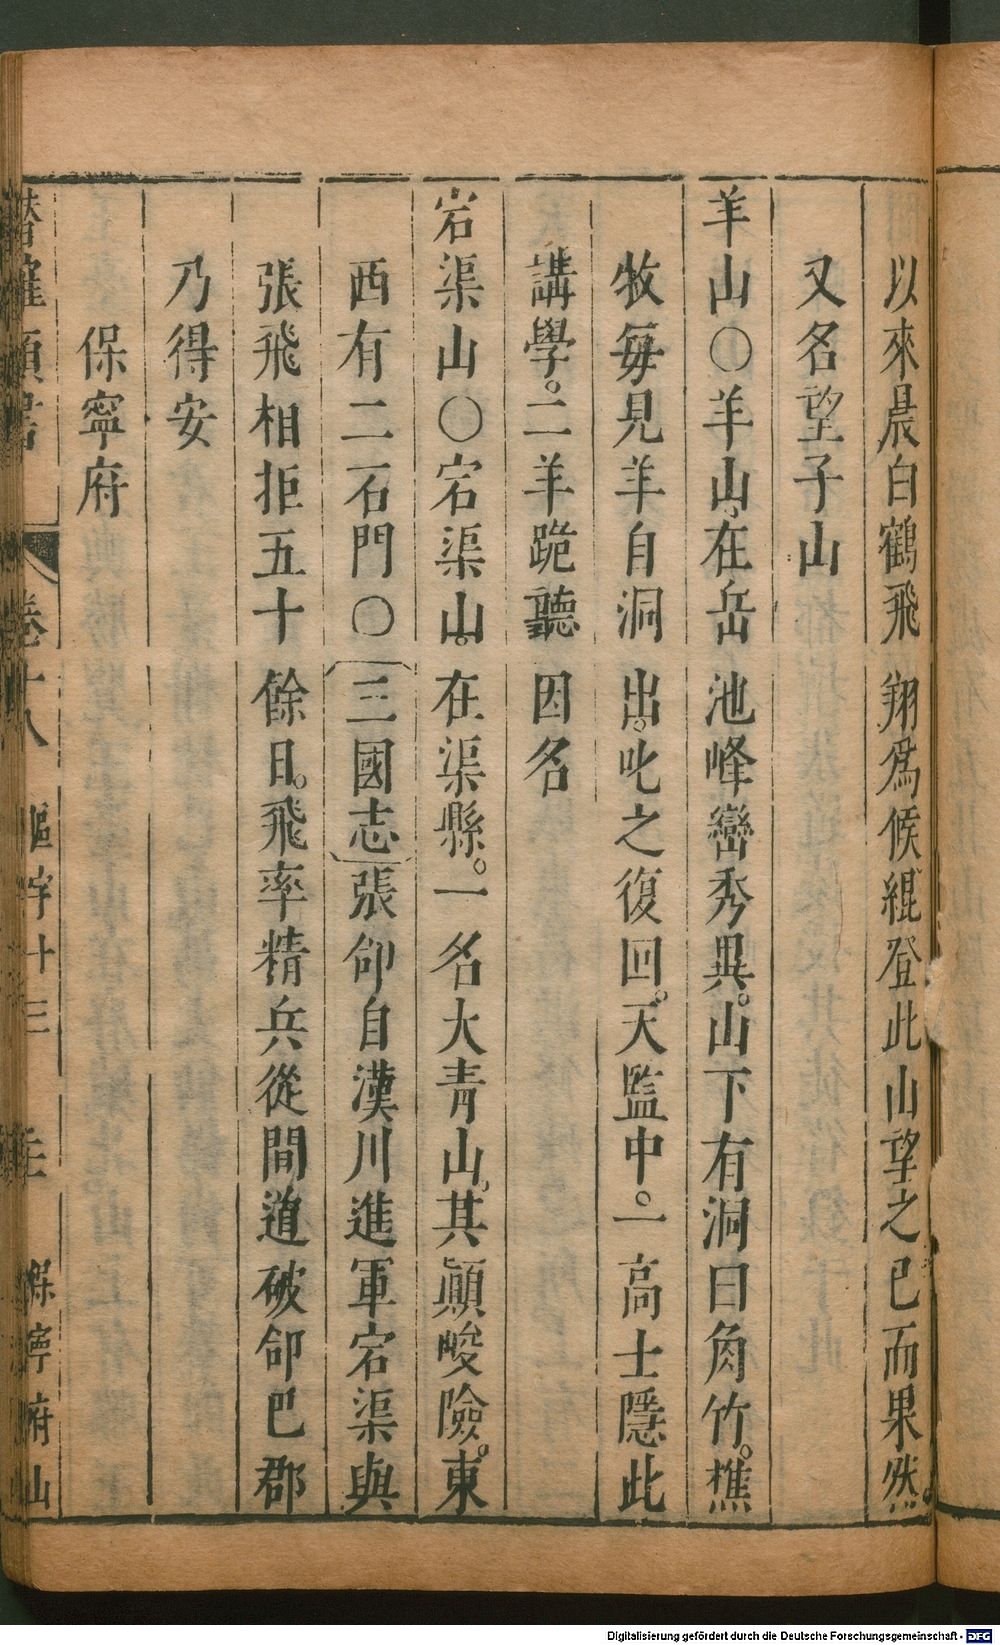 以來晨白鶴飛翔爲候緄登此山望之已而果然。
又名望子山
羊山〇羊山。在岳池峰巒秀異。山下有洞曰角竹。樵
牧每見羊自洞出。叱之復回。天監中。一高士隱此
講學。二羊跪聽因名
岩渠山〇宕渠山。在渠縣。一名大青山。其顛峻險。東
西有二石門〇〔三國志〕張郃自漢川進軍宕渠與
張飛相拒五十餘日。飛率精兵從間道破郃巴郡
乃得安
保寧府
潛確類書 卷十八 區宇十三 保寧府山
Digitalisierung gefördert durch die Deutsche Forschungsgemeinschaft - DFG